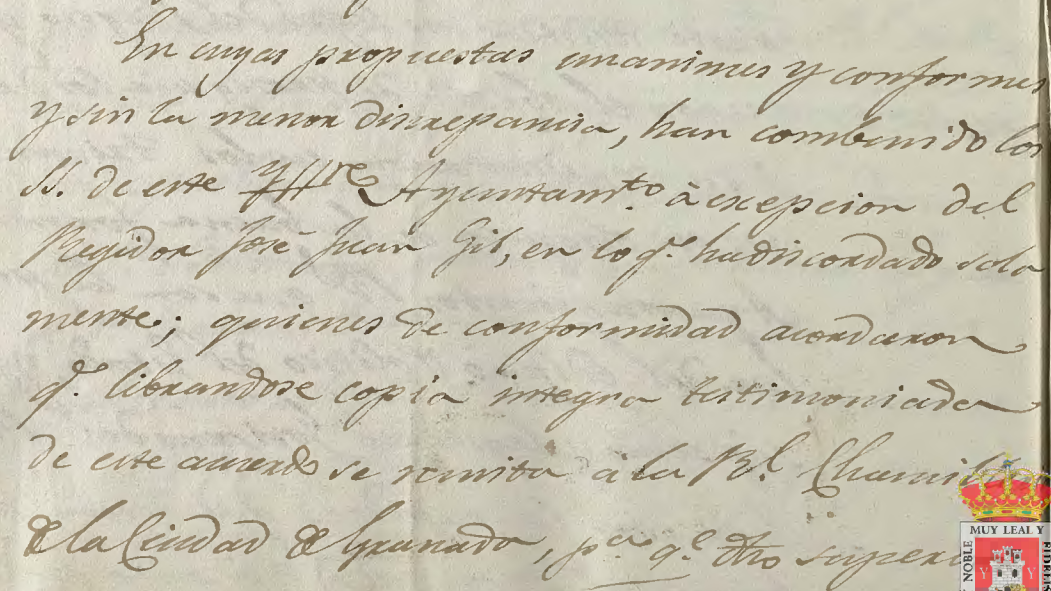 En cuyas propuestas unanimes y conformes
y sin la menor discrepancia, han combenido los
SS. de este Yltre Ayuntamto. à excepcion del
Regidor José Juan Gil, en lo qe. ha discordado sola
mente; quienes de conformidad acordaron
qe. librandose copia integra testimoniada
de este acuerdo se remita à la Rl. Chancill
de la Ciudad de Granada, pa. qe. dho superi
MUY LEAL Y
NOBLE
FIDELIS
Y Y